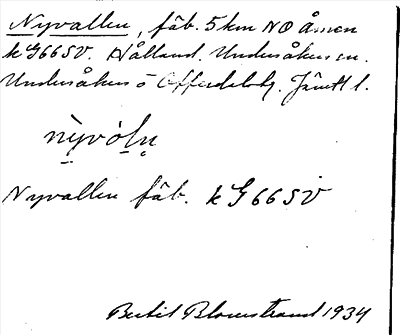 Nyvallen, fäb. 5 km NO Åmon
k G66SV. Hålland. Undersåkers sn.
Undersåkers o Offerdals tg. Jämtl l.
nỳvòl̥n̥
Nyvallen fäb. k G66SV
Bertil Blomstrand 1934